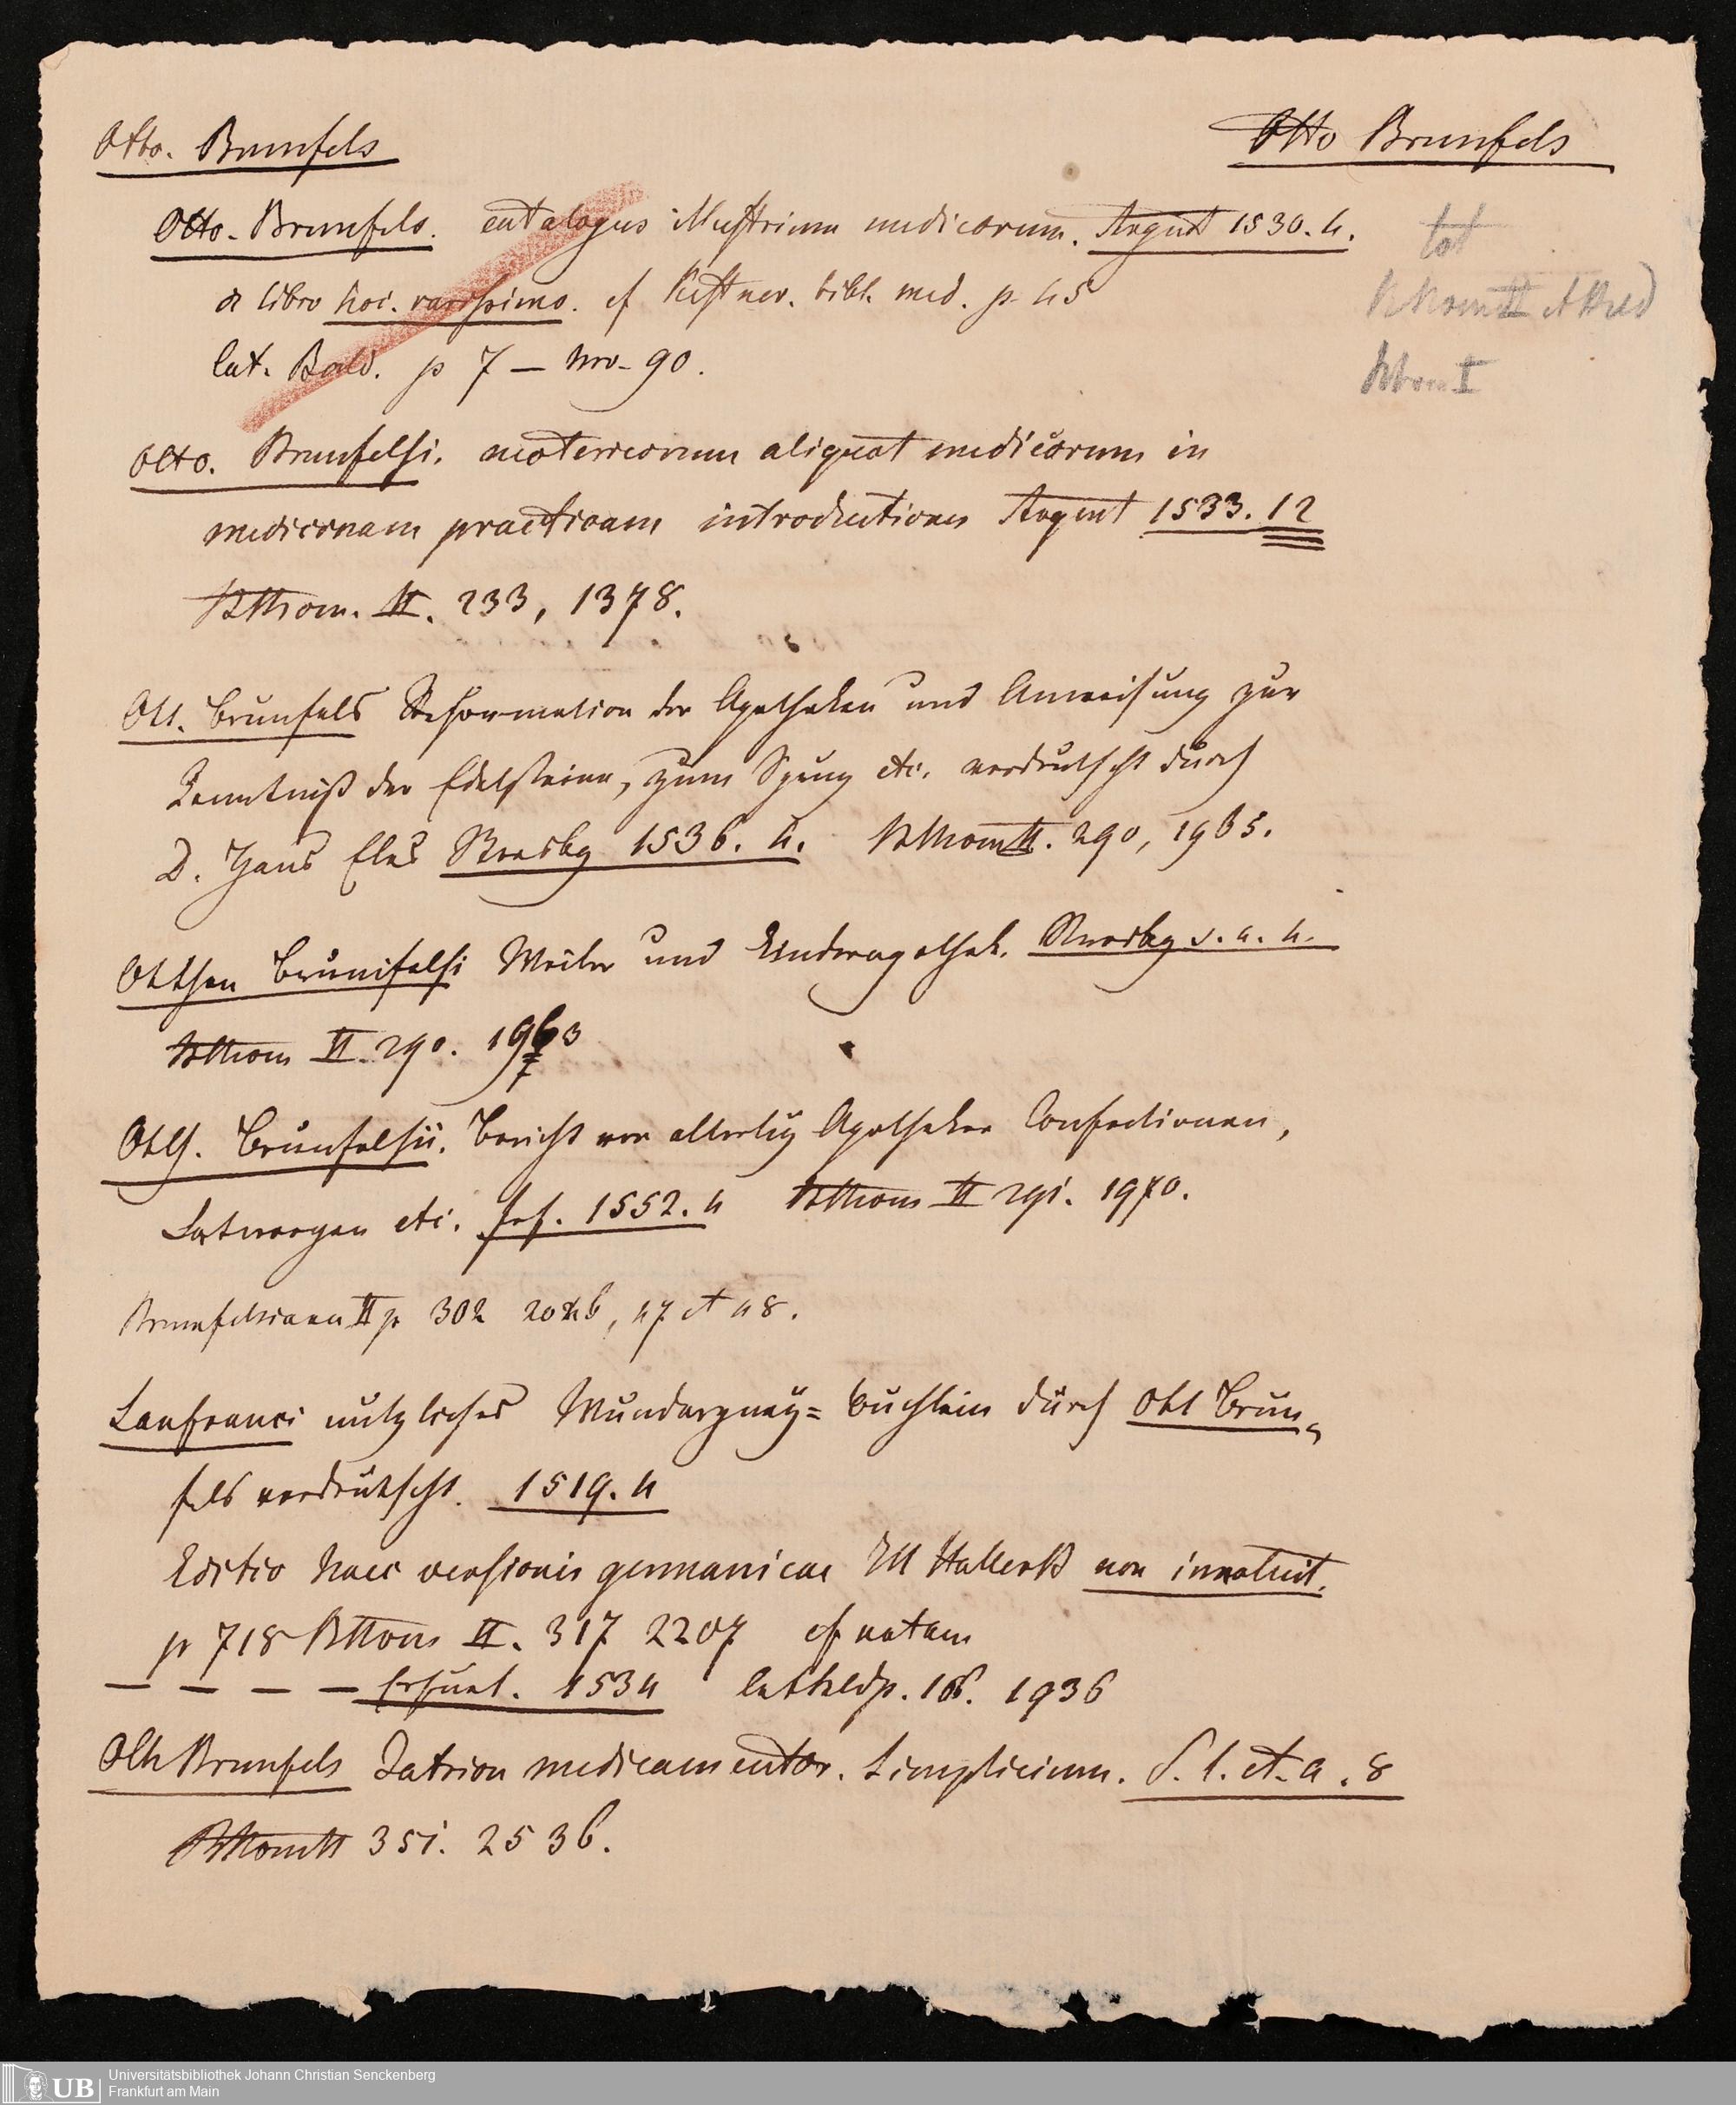 Otto. Brunfels
Otto Brunfels
Otto. Brunfels. catalogus illustrium medicorum. Argent 1530. 4.
de libro hoc. rarissimo. cf Kestner. bibl. med. p. 45
Cat. Bald. p 7 – Nro. 90.
tot
Bthom II et Bald
Bthom I
Otto. Brunfelsi. neotericorum aliquot medicorum in
medicinam practicam introductiones Argent 1533. 12
Bthom. II. 233, 1378.
Ott. Brunfels Reformation der Apotheken und Anweisung zur
Kenntniß der Edelsteine, zum etc. verdeutscht durch
D. Hans Eles Strasbg 1536. 4. Bthom II. 290, 1965.
Otthen Brunifelsi Weiber und Kinderapothek. Strasbg s. a. 4.
Bthom II. 290. 1963
Otth. Brunfelsii. Bericht von allerley Apotheker Confectionen,
Latwergen etc. frf. 1552. 4 Bthom II 291. 1970.
Brunfelsiana II p 302 2046, 47 et 48.
Lanfranci nützliches Wundarzney= büchlein durch Ott Brun-
fels verdeutscht. 1519. 4
Editio haec versionis germanicae Ill Hallero non innotuit.
p 718 Bthom II. 317 2207 cf notam
— — — — Erfurt. 1534 Cat p. 106. 1936
Oth Brunfels Iatrion medicamentor. simplicium. S. l. et. a. 8
Bthom II 351. 2536.
Universitätsbibliothek Johann Christian Senckenberg
Frankfurt am Main
UB